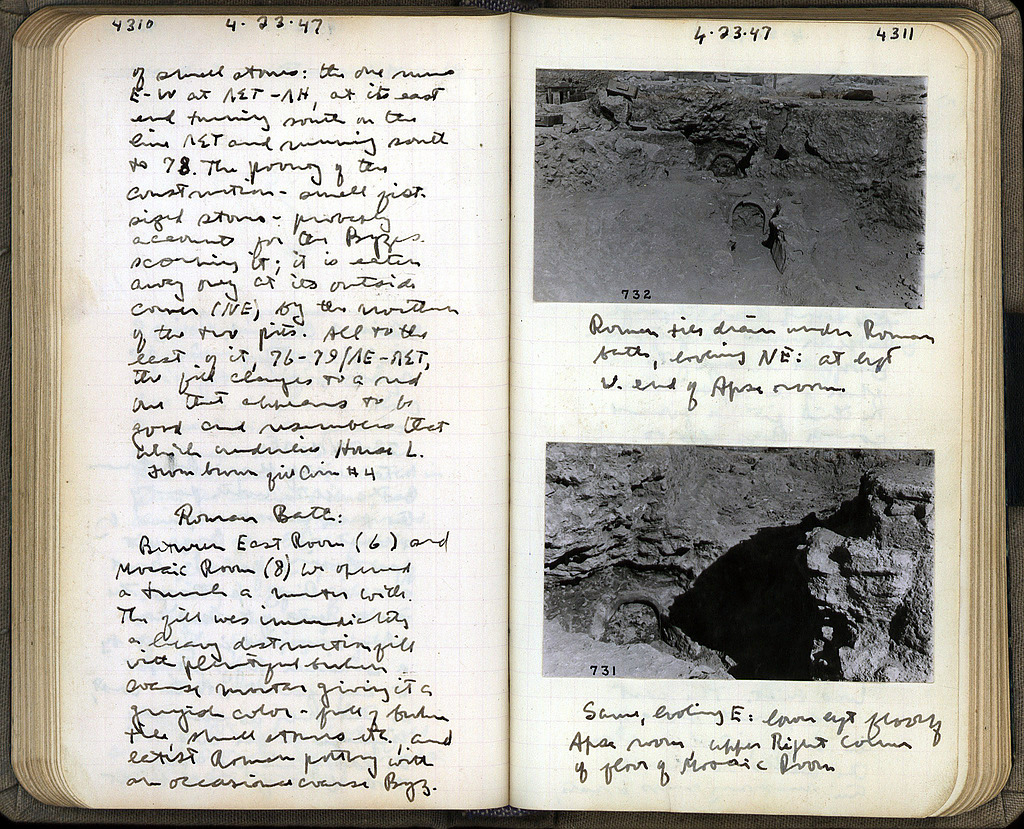 4310 4.23.47
of small stones: the one runs
E-W at ΛΣΤ-ΛΗ, at its east
end turning south on the
line ΛΣΤ and running south
to 78. The poorness of the
construction - small fist-
sized stones - probably
accounts for the Byzes.
scorning it; it is eaten
away only at its outside
corner (NE) by the northern
of the two pits. All to the
east of it, 76-79/ΛΕ-ΛΣΤ,
the fill changes to a red
one that appears to be
good and resembles that
which underlies House L.
From brown fill Coin #4
Roman Bath:
Between East Room (6) and
Mosaic Room (8) we opened
a trench a meter wide.
The fill was immediately
a heavy destruction fill
with plentiful broken
coarse mortar giving it a
greyish color - full of broken
tile, small stones etc., and
latest Roman pottery with
an occasional coarse Byz.
4.23.47 4311
732
Roman tile drain under Roman
bath, looking NE: at left
W. end of Apse room
731
Same, looking E: lower left floor of
Apse room, upper Right Corner
of floor of Mosaic Room